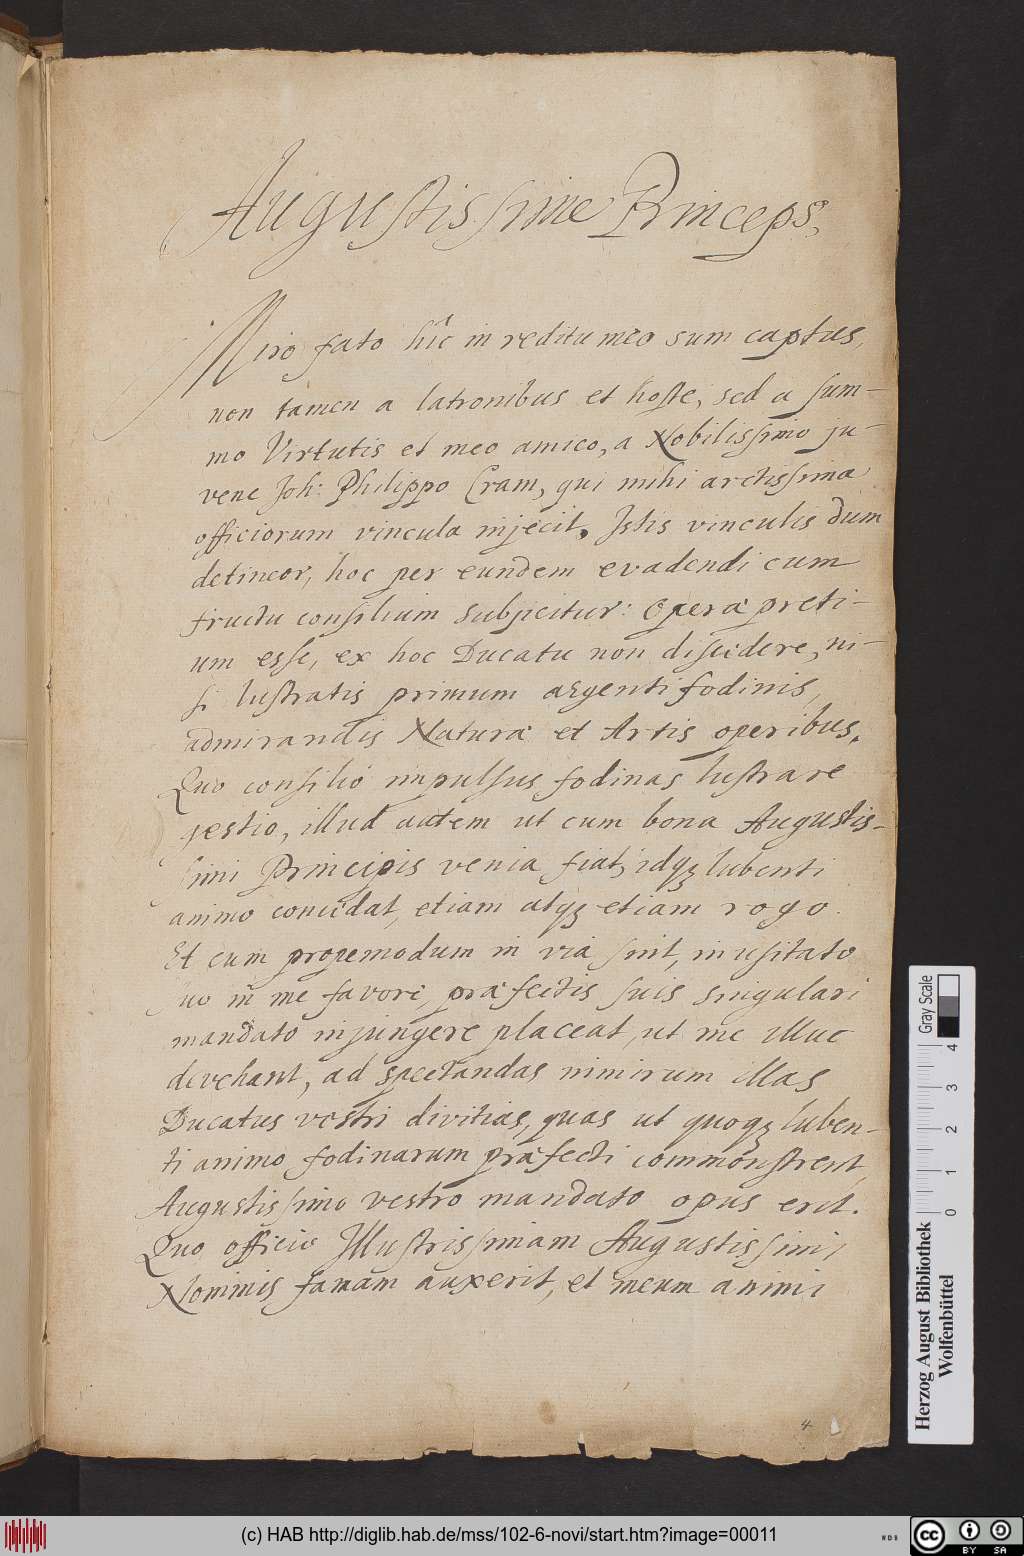 Augustissime Princeps,
Miro fato hîc in reditu meo sum captus,
non tamen a latronibus et hoste, sed a sum-
mo Virtutis et meo amico, a Nobilissimo ju-
vene Joh: Philippo Cram, qui mihi arctissima
officiorum vincula injecit. Istis vinculis dum
detineor, hoc per eundem evadendi cum
fructu consilium subjicitur: Operæ preti-
um esse, ex hoc Ducatu non discedere, ni-
si lustratis primum argentifodinis,
admirandis Naturæ et Artis operibus.
Quo consilio impulsus fodinas lustrare
gestio, illud autem ut cum bona Augustis-
simi Principis venia fiat, idqz lubenti
animo concedat, etiam atqz etiam rogo.
Et cum propemodum in via sint, inusitato
suo in me favore, præfectis suis singulari
mandato injungere placeat, ut me illuc
devehant, ad spectandas nimirum illas
Ducatus vestri divitias, quas ut quoqz luben-
ti animo fodinarum præfecti commonstrent,
Augustissimo vestro mandato opus erit.
Quo officio Illustrissimam Augustissimi
Nominis famam auxerit, et meum animi
4
Herzog August Bibliothek
Wolfenbüttel
0 1 2 3 4
Gray Scale
(c) HAB http://diglib.hab.de/mss/102-6-novi/start.htm?image=00011
WDB
cc BY SA